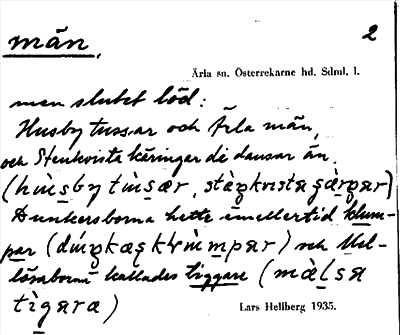 män,
2
Ärla sn. Österrekarne hd. Sdml. l.
men slutet löd:
Husby tussar och Ärla män,
och Stenkvista käringar de dansar än.
(hùsby tùsær, stàŋkvista gàrŋar)
Dunkersborna hette emellertid klum-
par (dúŋkaʂ klùmpar) och Mel-
lösaborna kallades tiggare (màlsa
tìgara)
Lars Hellberg 1935.